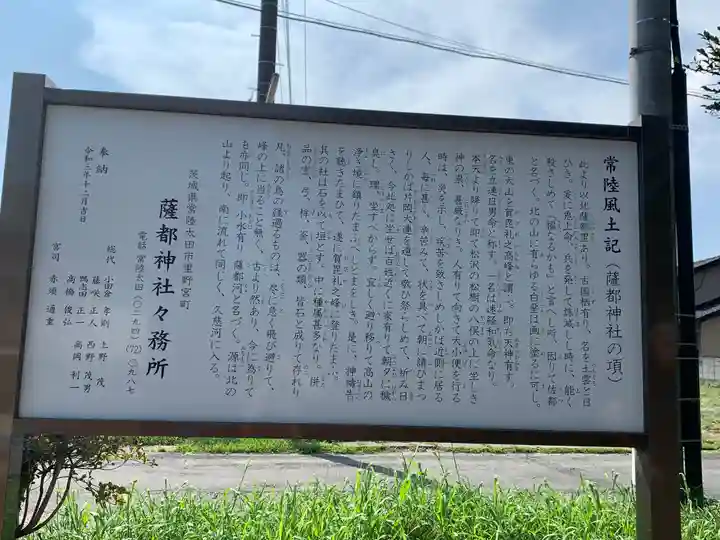 常陸風土記(薩都神社の項)
此より以北薩都里あり、古国栖有り、名を土雲と曰
ひき。爰に兎上命、兵を発して誅滅しし時に、能く
殺さしめて「福なるかも」と言へし所、因りて佐都
と名づく。北の山に有らゆる白堊は画に塗るに可し。
東の大山を賀毘礼之高峰と謂ふ。即ち天神有す、
名を立速日男命と称す。一名は速経和気命なり、
本天より降りて即て松沢の松樹の八俣の上に坐しき
神の祟、甚厳けりき。人有りて向きて大小便を行る
時は、災を示し、疾苦を致さしめしかば近側に居る
人、毎に甚く、辛苦みて、状を具べて朝に請ひまつ
りしかば片岡大連を遣して敬ひ祭らしめて、祈み曰
さく、今此処に坐せば百姓近くに家有りて朝夕に穢
臭し、理、坐すべからず。宜しく避り移りて高山の
浄き境に鎮りたまふべしとまをしき。是に、神祷告
を聴きたまひて、遂に賀毘礼之峰に登りたまふ、
其の社は石を以て垣とす。中に種属甚多なり。併
品の宝、弓、桙、釜、器の類、皆石と成りて存れり
凡、諸の鳥の経過るものは、尽に急く飛び避りて、
峰の上に当ること無く、古より然あり、今に為りて
も亦同じ。即ち小水有り、薩都河と名づく。源は北の
山より起り、南に流れて同じく、久慈河に入る。
茨城県常陸太田市里野宮町
薩都神社々務所
電話 常陸太田(〇二九四)(72)〇九八七
奉納
令和三年十二月吉日
総代 小田倉 年剛
藤咲 正人
鴨志田 正一
高橋 俊弘
上野 茂
西野 茂男
高岡 利一
宮司 赤須 通重